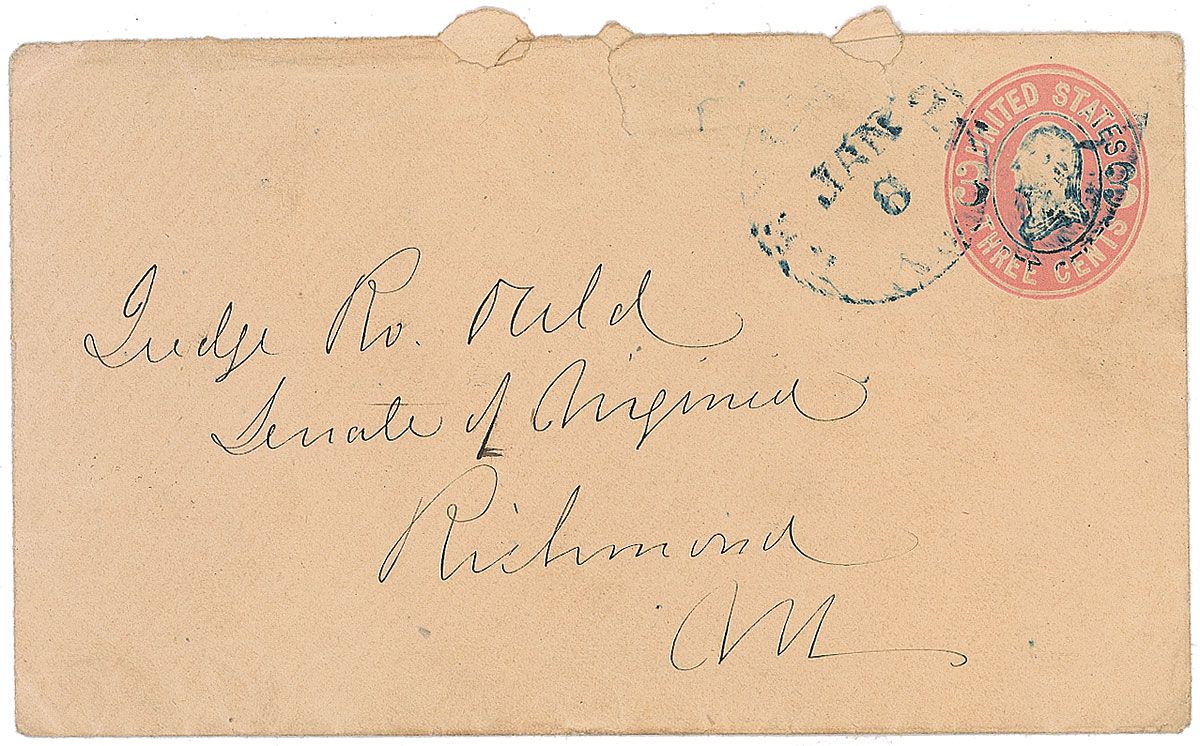 JAN 2
8
UNITED STATES
3 3
THREE CENTS
Judge Ro. Ould
Senate of Virginia
Richmond
Va